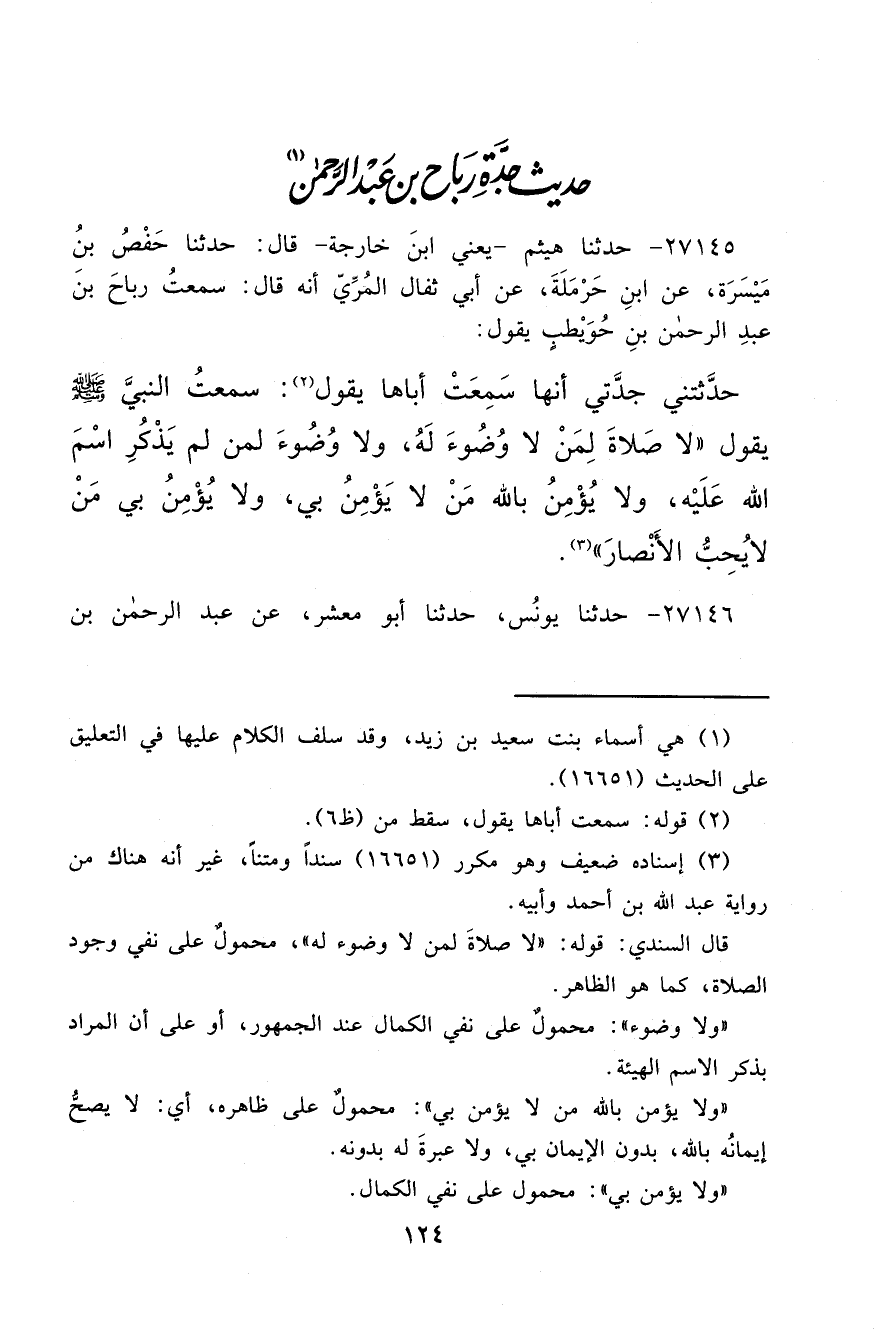 حديث جدَّةِ رَبَاح بن عَبْد الرَّحمٰن (١)
٢٧١٤٥- حدثنا هيثم -يعني ابنَ خارجة- قال: حدثنا حَفْصُ بنُ
مَيْسَرَة، عن ابنِ حَرْمَلَةَ، عن أبي ثفال المُرِّيّ أنه قال: سمعتُ رباحَ بنَ
عبدِ الرحمٰن بنِ حُوَيْطبٍ يقول:
حدَّثتني جدَّتي أنها سَمِعَتْ أباها يقول(٢): سمعتُ النبيَّ ﷺ
يقول «لا صَلاةَ لِمَنْ لا وُضُوءَ لَهُ، ولا وُضُوءَ لمن لم يَذْكُرِ اسْمَ
الله عَلَيْه، ولا يُؤْمِنُ بالله مَنْ لا يَؤْمِنُ بي، ولا يُؤْمِنُ بي مَنْ
لايُحِبُّ الأَنْصارَ»(٣).
٢٧١٤٦- حدثنا يونُس، حدثنا أبو معشر، عن عبد الرحمٰن بن
(١) هي أسماء بنت سعيد بن زيد، وقد سلف الكلام عليها في التعليق
على الحديث (١٦٦٥١).
(٢) قوله: سمعت أباها يقول، سقط من (ظ٦).
(٣) إسناده ضعيف وهو مكرر (١٦٦٥١) سنداً ومتناً، غير أنه هناك من
رواية عبد الله بن أحمد وأبيه.
قال السندي: قوله: «لا صلاةَ لمن لا وضوء له»، محمولٌ على نفي وجود
الصلاة، كما هو الظاهر.
«ولا وضوء»: محمولٌ على نفي الكمال عند الجمهور، أو على أن المراد
بذكر الاسم الهيئة.
«ولا يؤمن بالله من لا يؤمن بي»: محمولٌ على ظاهره، أي: لا يصحُّ
إيمانُه بالله، بدون الإيمان بي، ولا عبرةَ له بدونه.
«ولا يؤمن بي»: محمول على نفي الكمال.
١٢٤